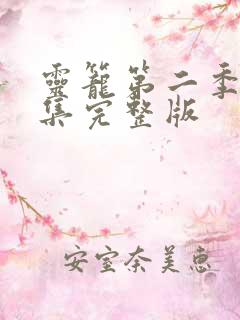 靈籠第二季
集完整版
安室奈美惠